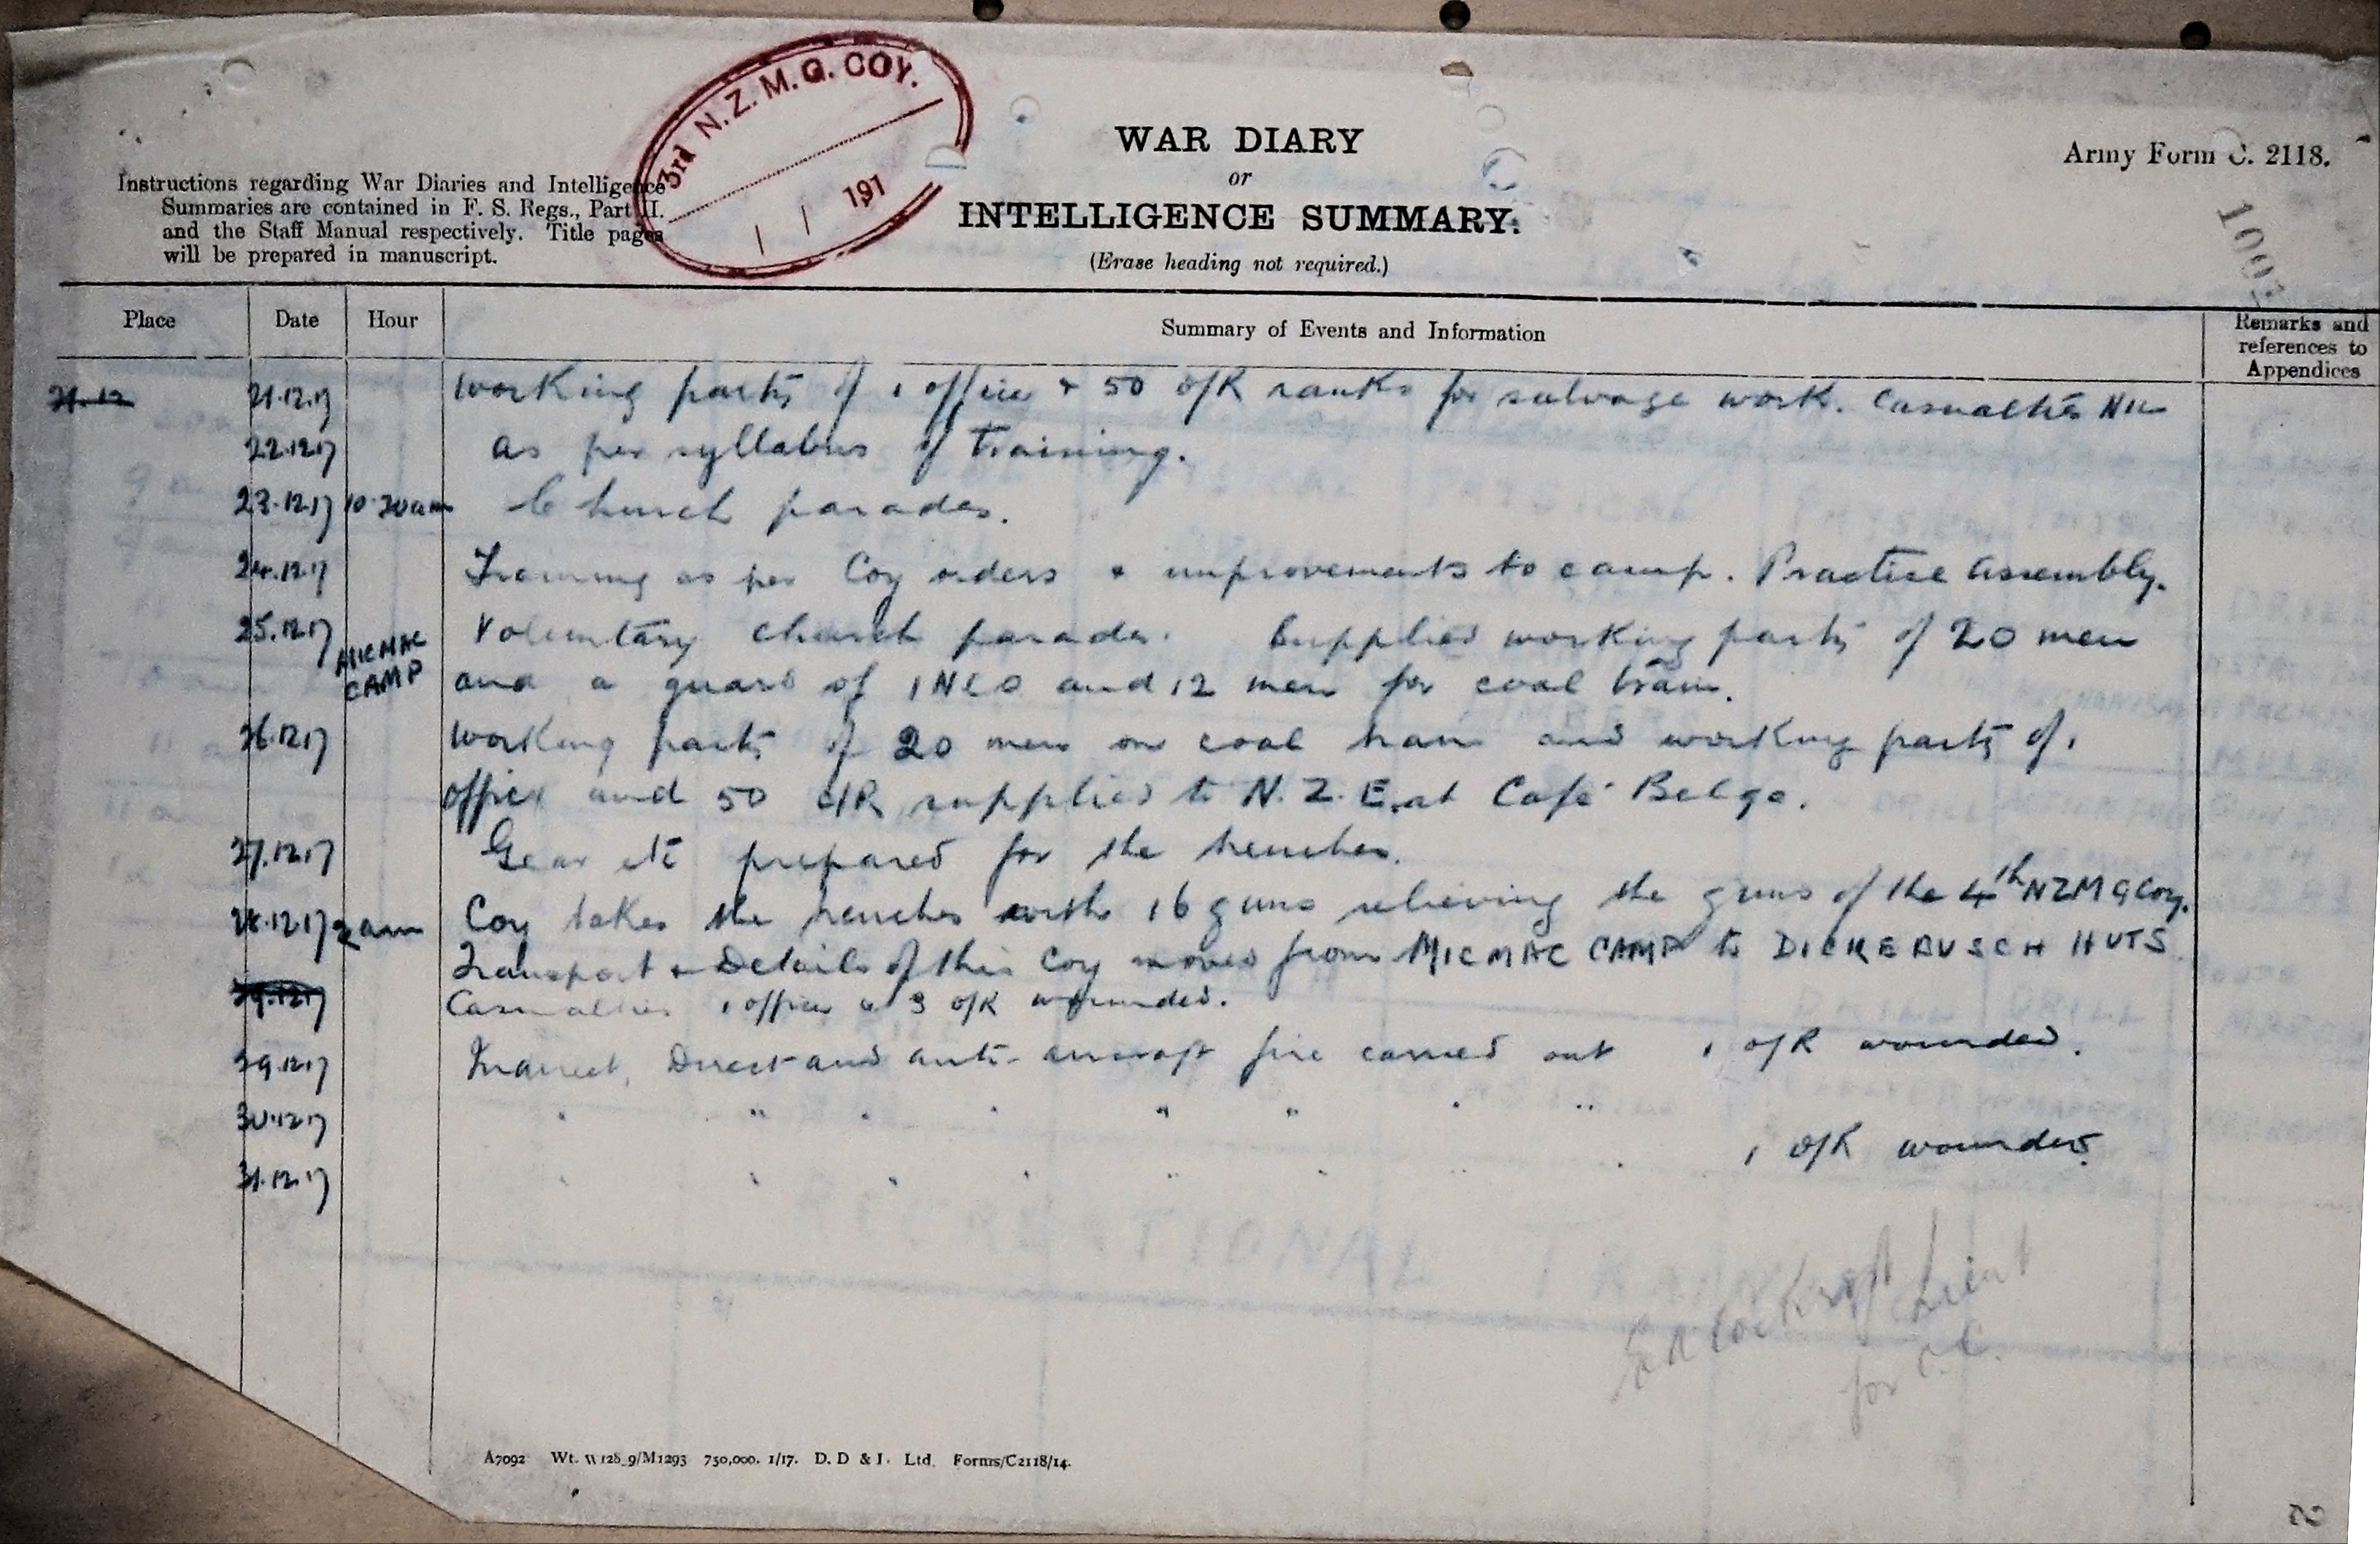 3rd N.Z.M.G. COY.
191
WAR DIARY
or
INTELLIGENCE SUMMARY.
(Erase heading not required.)
Army Form C. 2118.
Instructions regarding War Diaries and Intelligence
Summaries are contained in F. S. Regs., Part II.
and the Staff Manual respectively. Title pages
will be prepared in manuscript.
Place Date Hour Summary of Events and Information Remarks and references to Appendices
21.12 21.12.17 Working party of 1 officer & 50 O/R ranks for salvage work. Casualties Nil
22.12.17 as per syllabus of Training.
23.12.17 10.30am Church parades.
24.12.17 Training as per Coy orders & improvements to camp. Practice Assembly.
25.12.17 MICMAC CAMP Voluntary church parades. Supplied working party of 20 men
and a guard of 1 NCO and 12 men for coal train.
26.12.17 Working party of 20 men on coal train and working party of 1
officer and 50 O/R supplied to N.Z.E. at Café Belge.
27.12.17 Gear etc prepared for the trenches.
28.12.17 2am Coy takes the trenches with 16 guns relieving the guns of the 4th NZMG Coy.
Transport & Details of this Coy moves from MICMAC CAMP to DICKEBUSCH HUTS
29.12.17 Casualties 1 officer & 3 O/R wounded.
29.12.17 Indirect, Direct and anti-aircraft fire carried out 1 O/R wounded.
30.12.17 " " " " " " " "
1 O/R wounded.
31.12.17 " " " " " " " "
Lieut
for O.C.
A7092 Wt. W128 9/M1293 750,000. 1/17. D. D & I. Ltd. Forms/C2118/14.